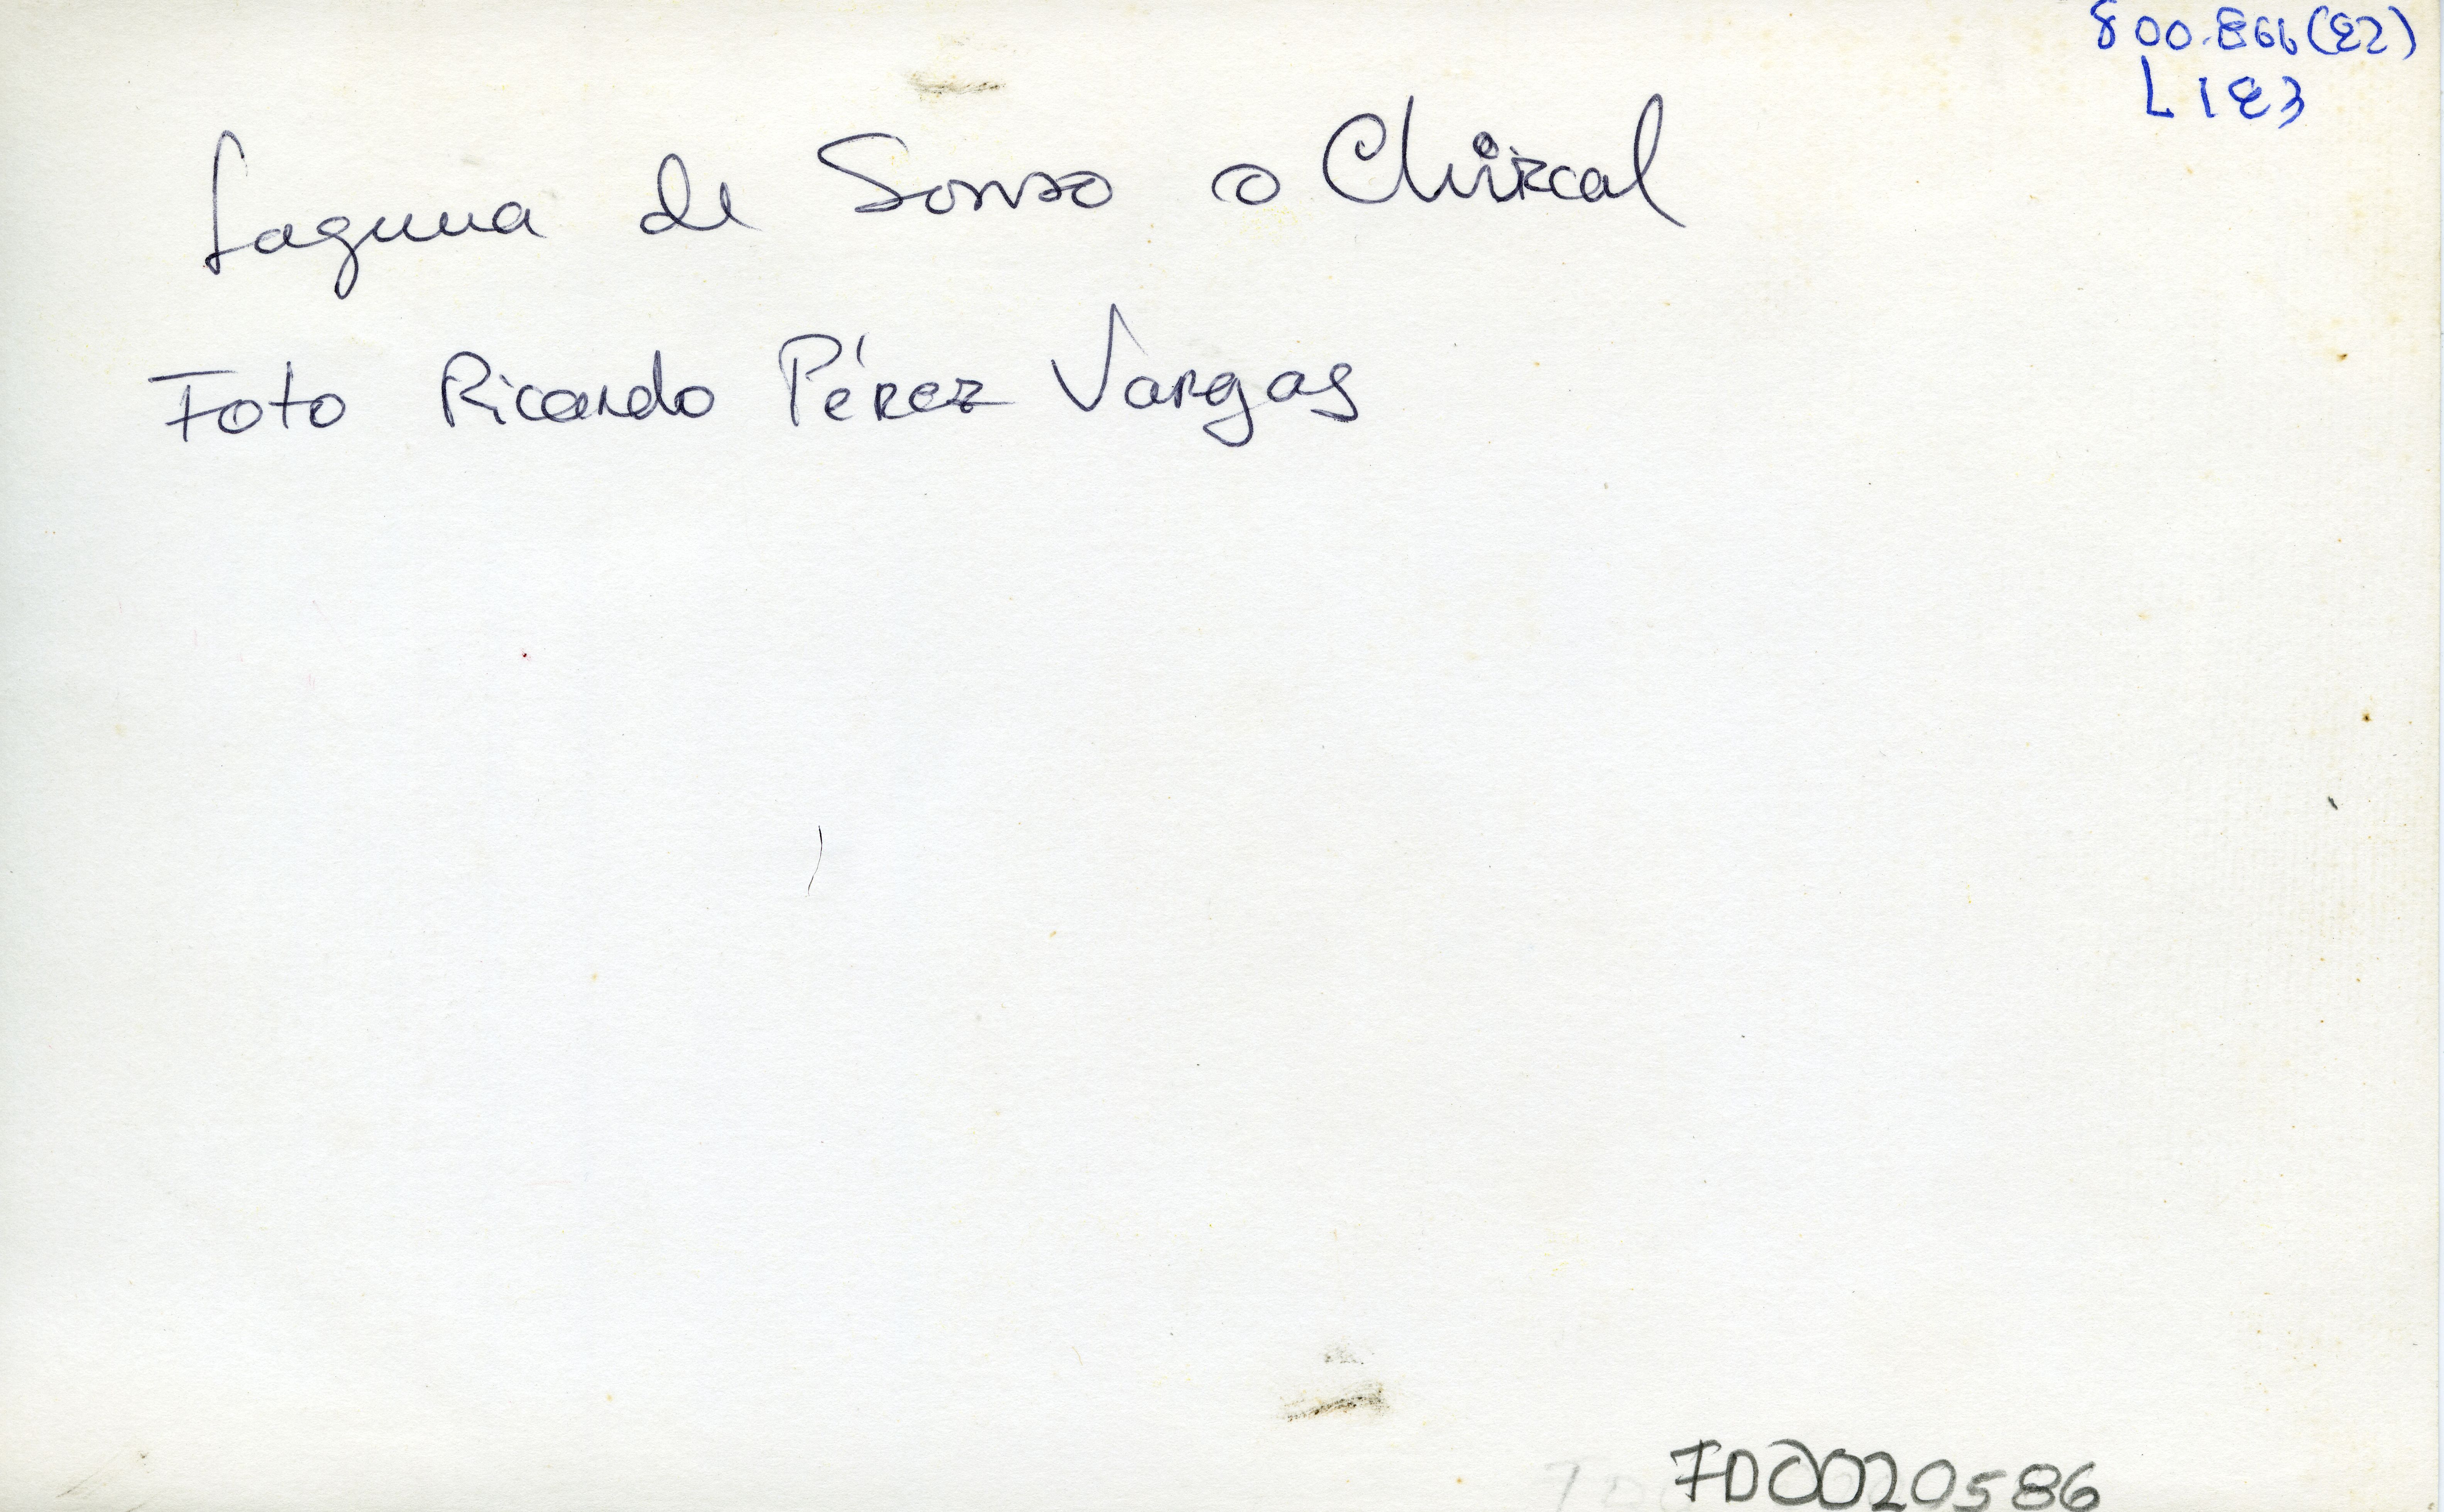 800.866(22)
L183
Laguna de Sonso o Chircal
Foto Ricardo Pérez Vargas
FD0020586